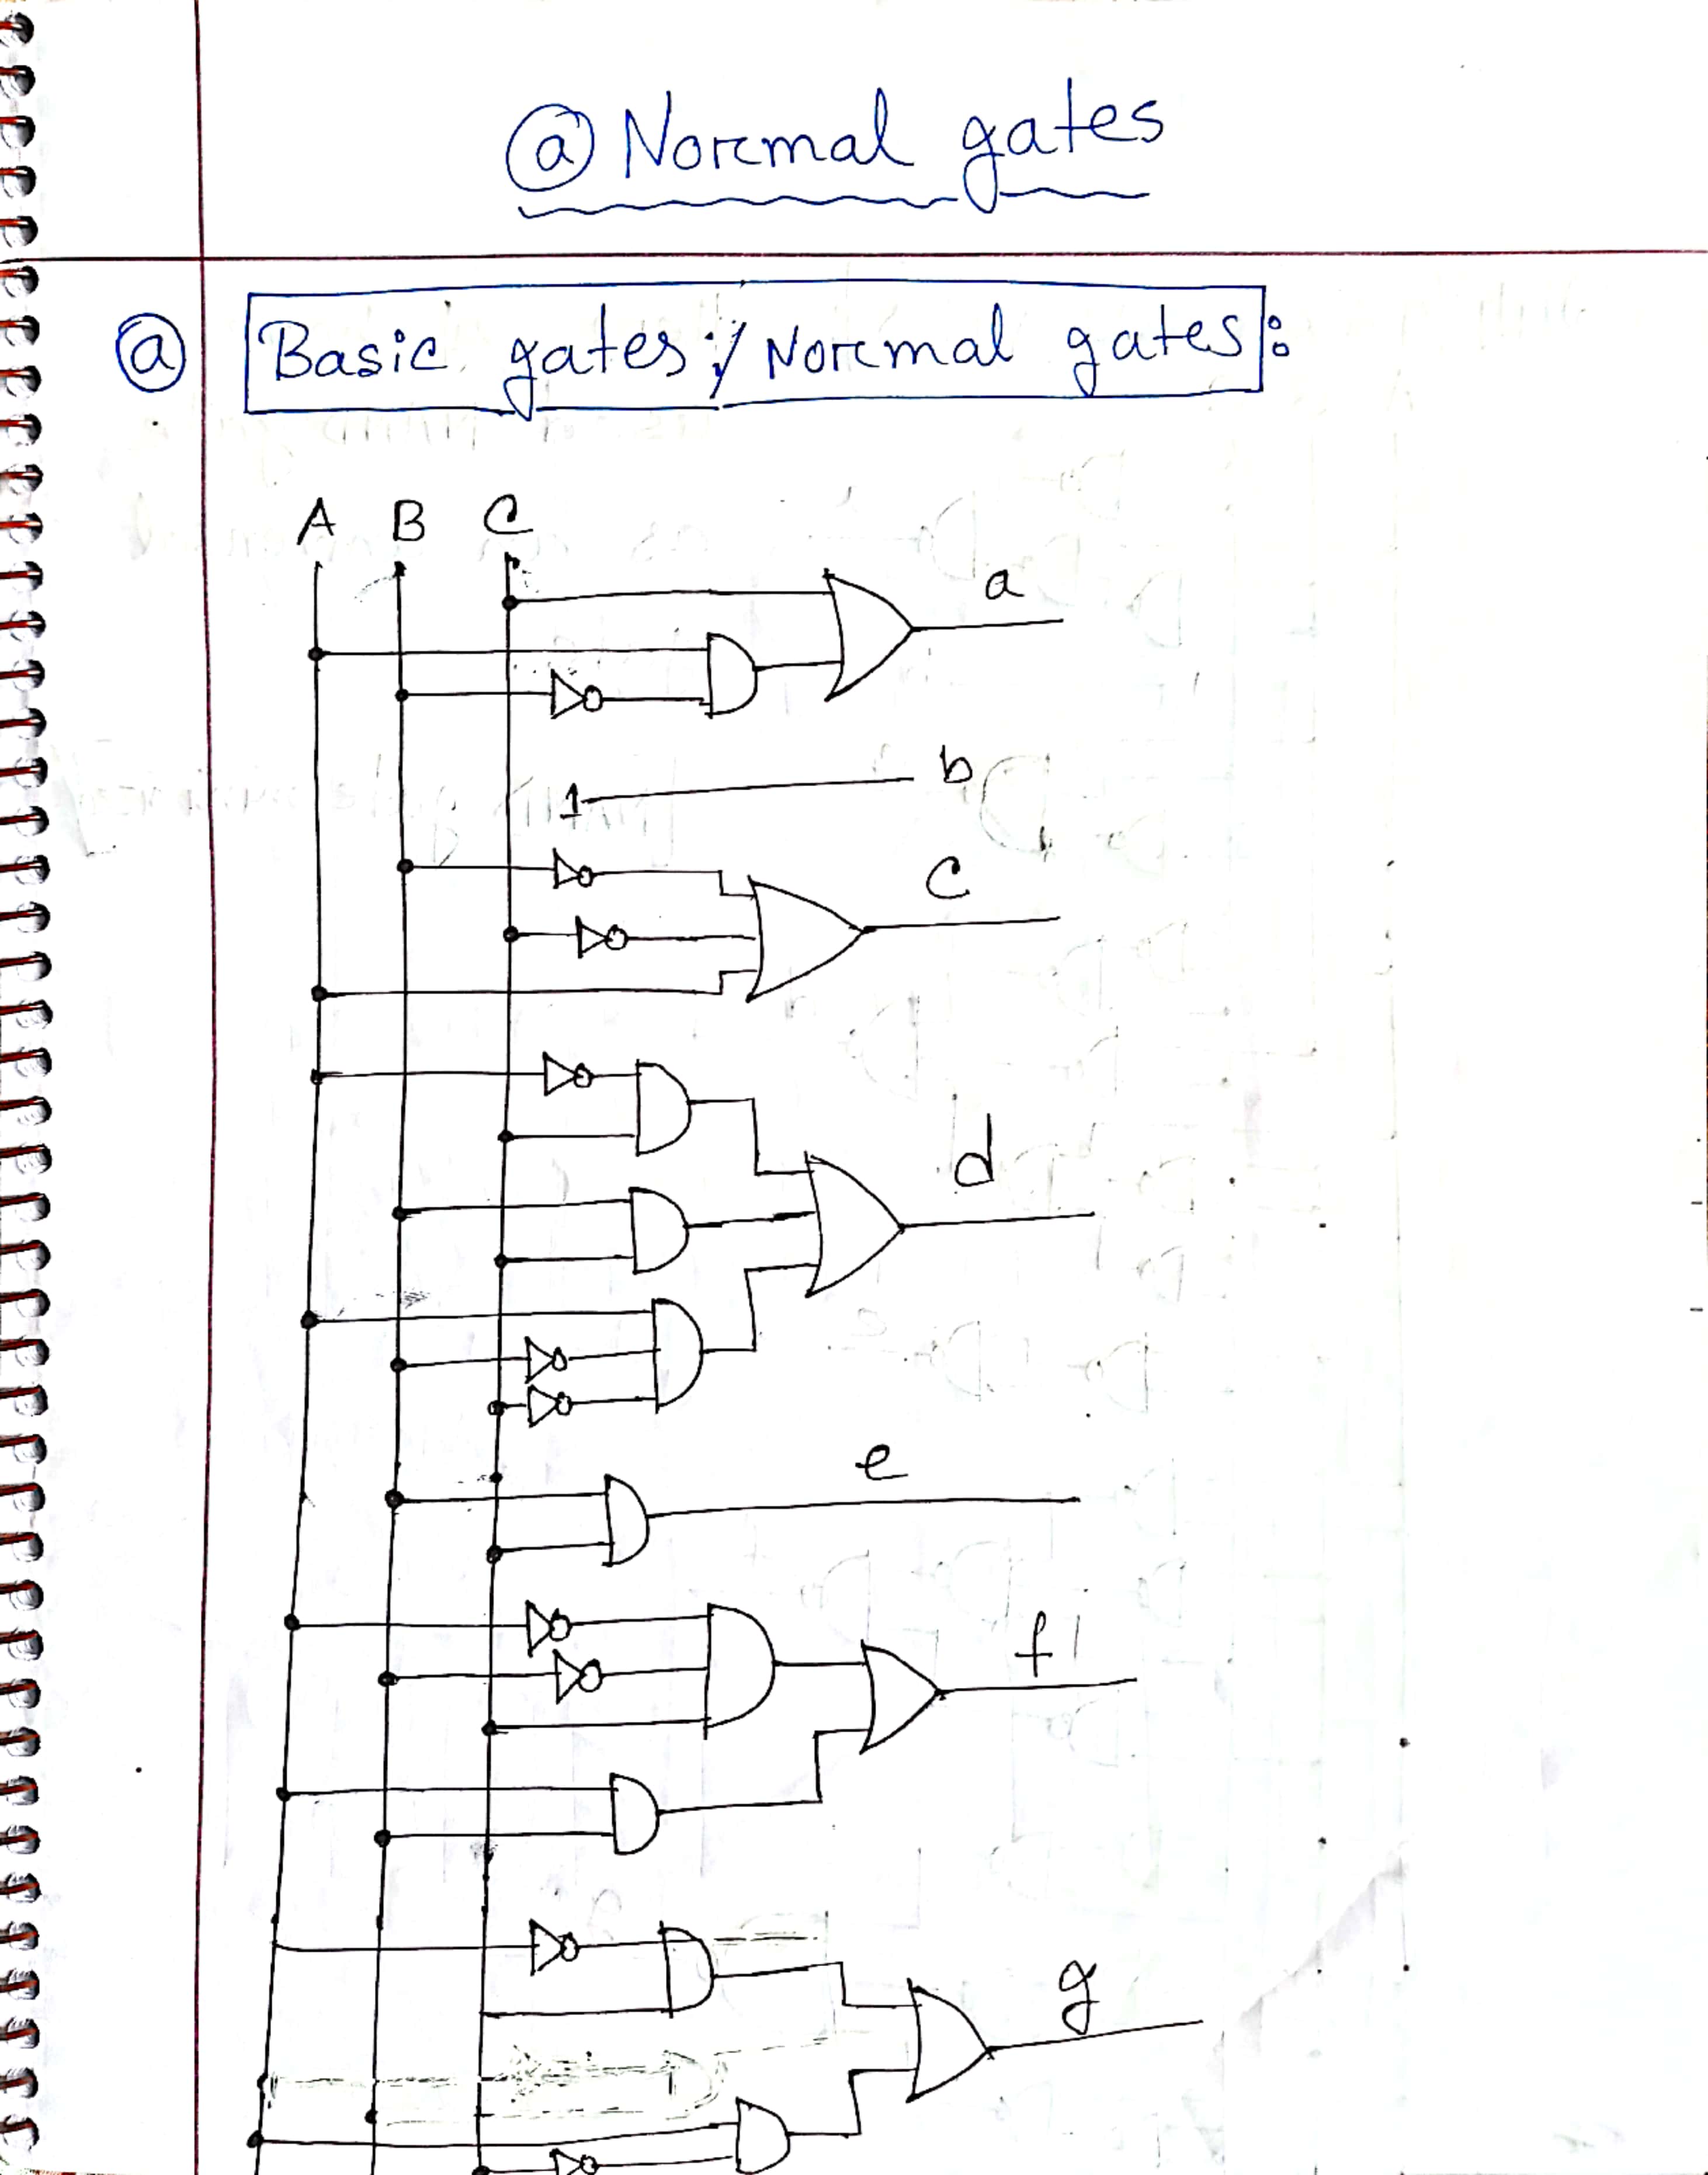 ⓐ Normal gates
ⓐ Basic gates:/Normal gates:
A B C
a
1 b
c
d
e
f
g